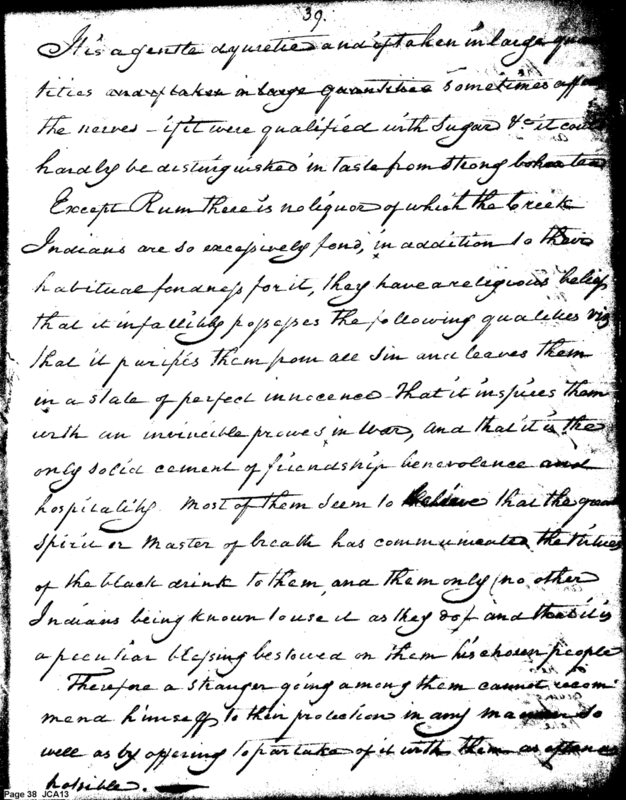 39.
It is a gentle dyuretic and if taken in large quan
tities and if taken in large quantities sometimes affec
the nerves – if it were qualified with Sugar &c it could
hardly be distinguished in taste from strong bohea tea
Except Rum there is no liquor of which the Creek
Indians are so excessively fond, in addition to their
habitual fondness for it, they have a religious belief
that it infallibly possesses the following qualities viz
that it purifies them from all Sin and leaves them
in a state of perfect innocence – that it inspires them
with an invincible prowes in War, and that it is the
only solid cement of friendship benevolence and
hospitality. Most of them seem to believe that the great
Spirit or Master of breath has communicated the virtues
of the black drink to them, and them only (no other
Indians being known to use it as they do) and that it is
a peculiar blessing bestowed on them his chosen people
Therefore a stranger going among them cannot recom
mend himself to their protection in any manner so
well as by offering to partake of it with them as often as
possible. —
Page 38 JCA13